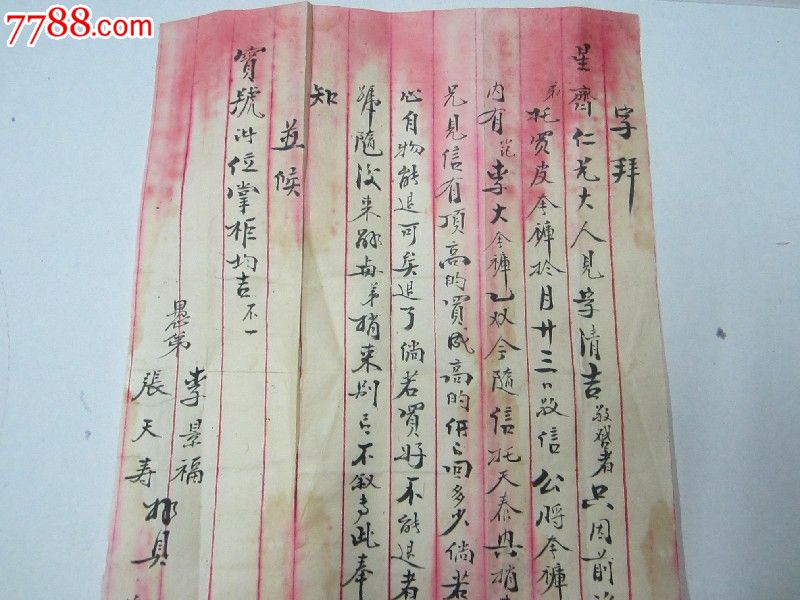 7788.com
字拜
星齋仁兄大人見字清吉敬啓者只因前
弟托買皮套褲於月廿三日敬信公將套褲
内有李大套褲乙双今隨信托天泰興捎
兄見信有頂高的買成高的伊回多少倘若
自物能退可矣退了倘若買好不能退者
號隨後来弟捎来別言不敘專此奉
知
並候
寳號 位掌柜均吉不一
愚弟
李景福
張天寿 具